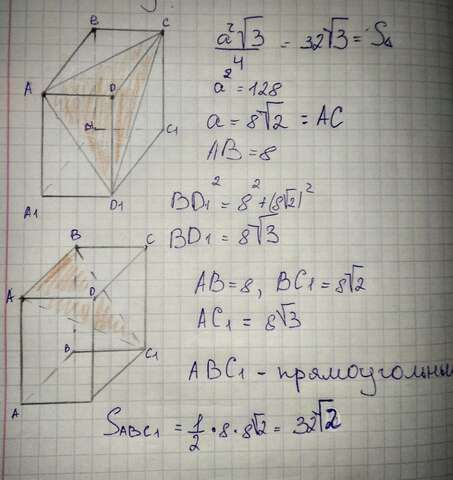 B C
A D
B1 C1
A1 D1
a²√3/4 = 32√3 = S△
a² = 128
a = 8√2 = AC
AB = 8
BD1² = 8² + (8√2)²
BD1 = 8√3
B C
A D
B C1
A
AB = 8, BC1 = 8√2
AC1 = 8√3
ABC1 - прямоугольный
S ABC1 = 1/2 • 8 • 8√2 = 32√2